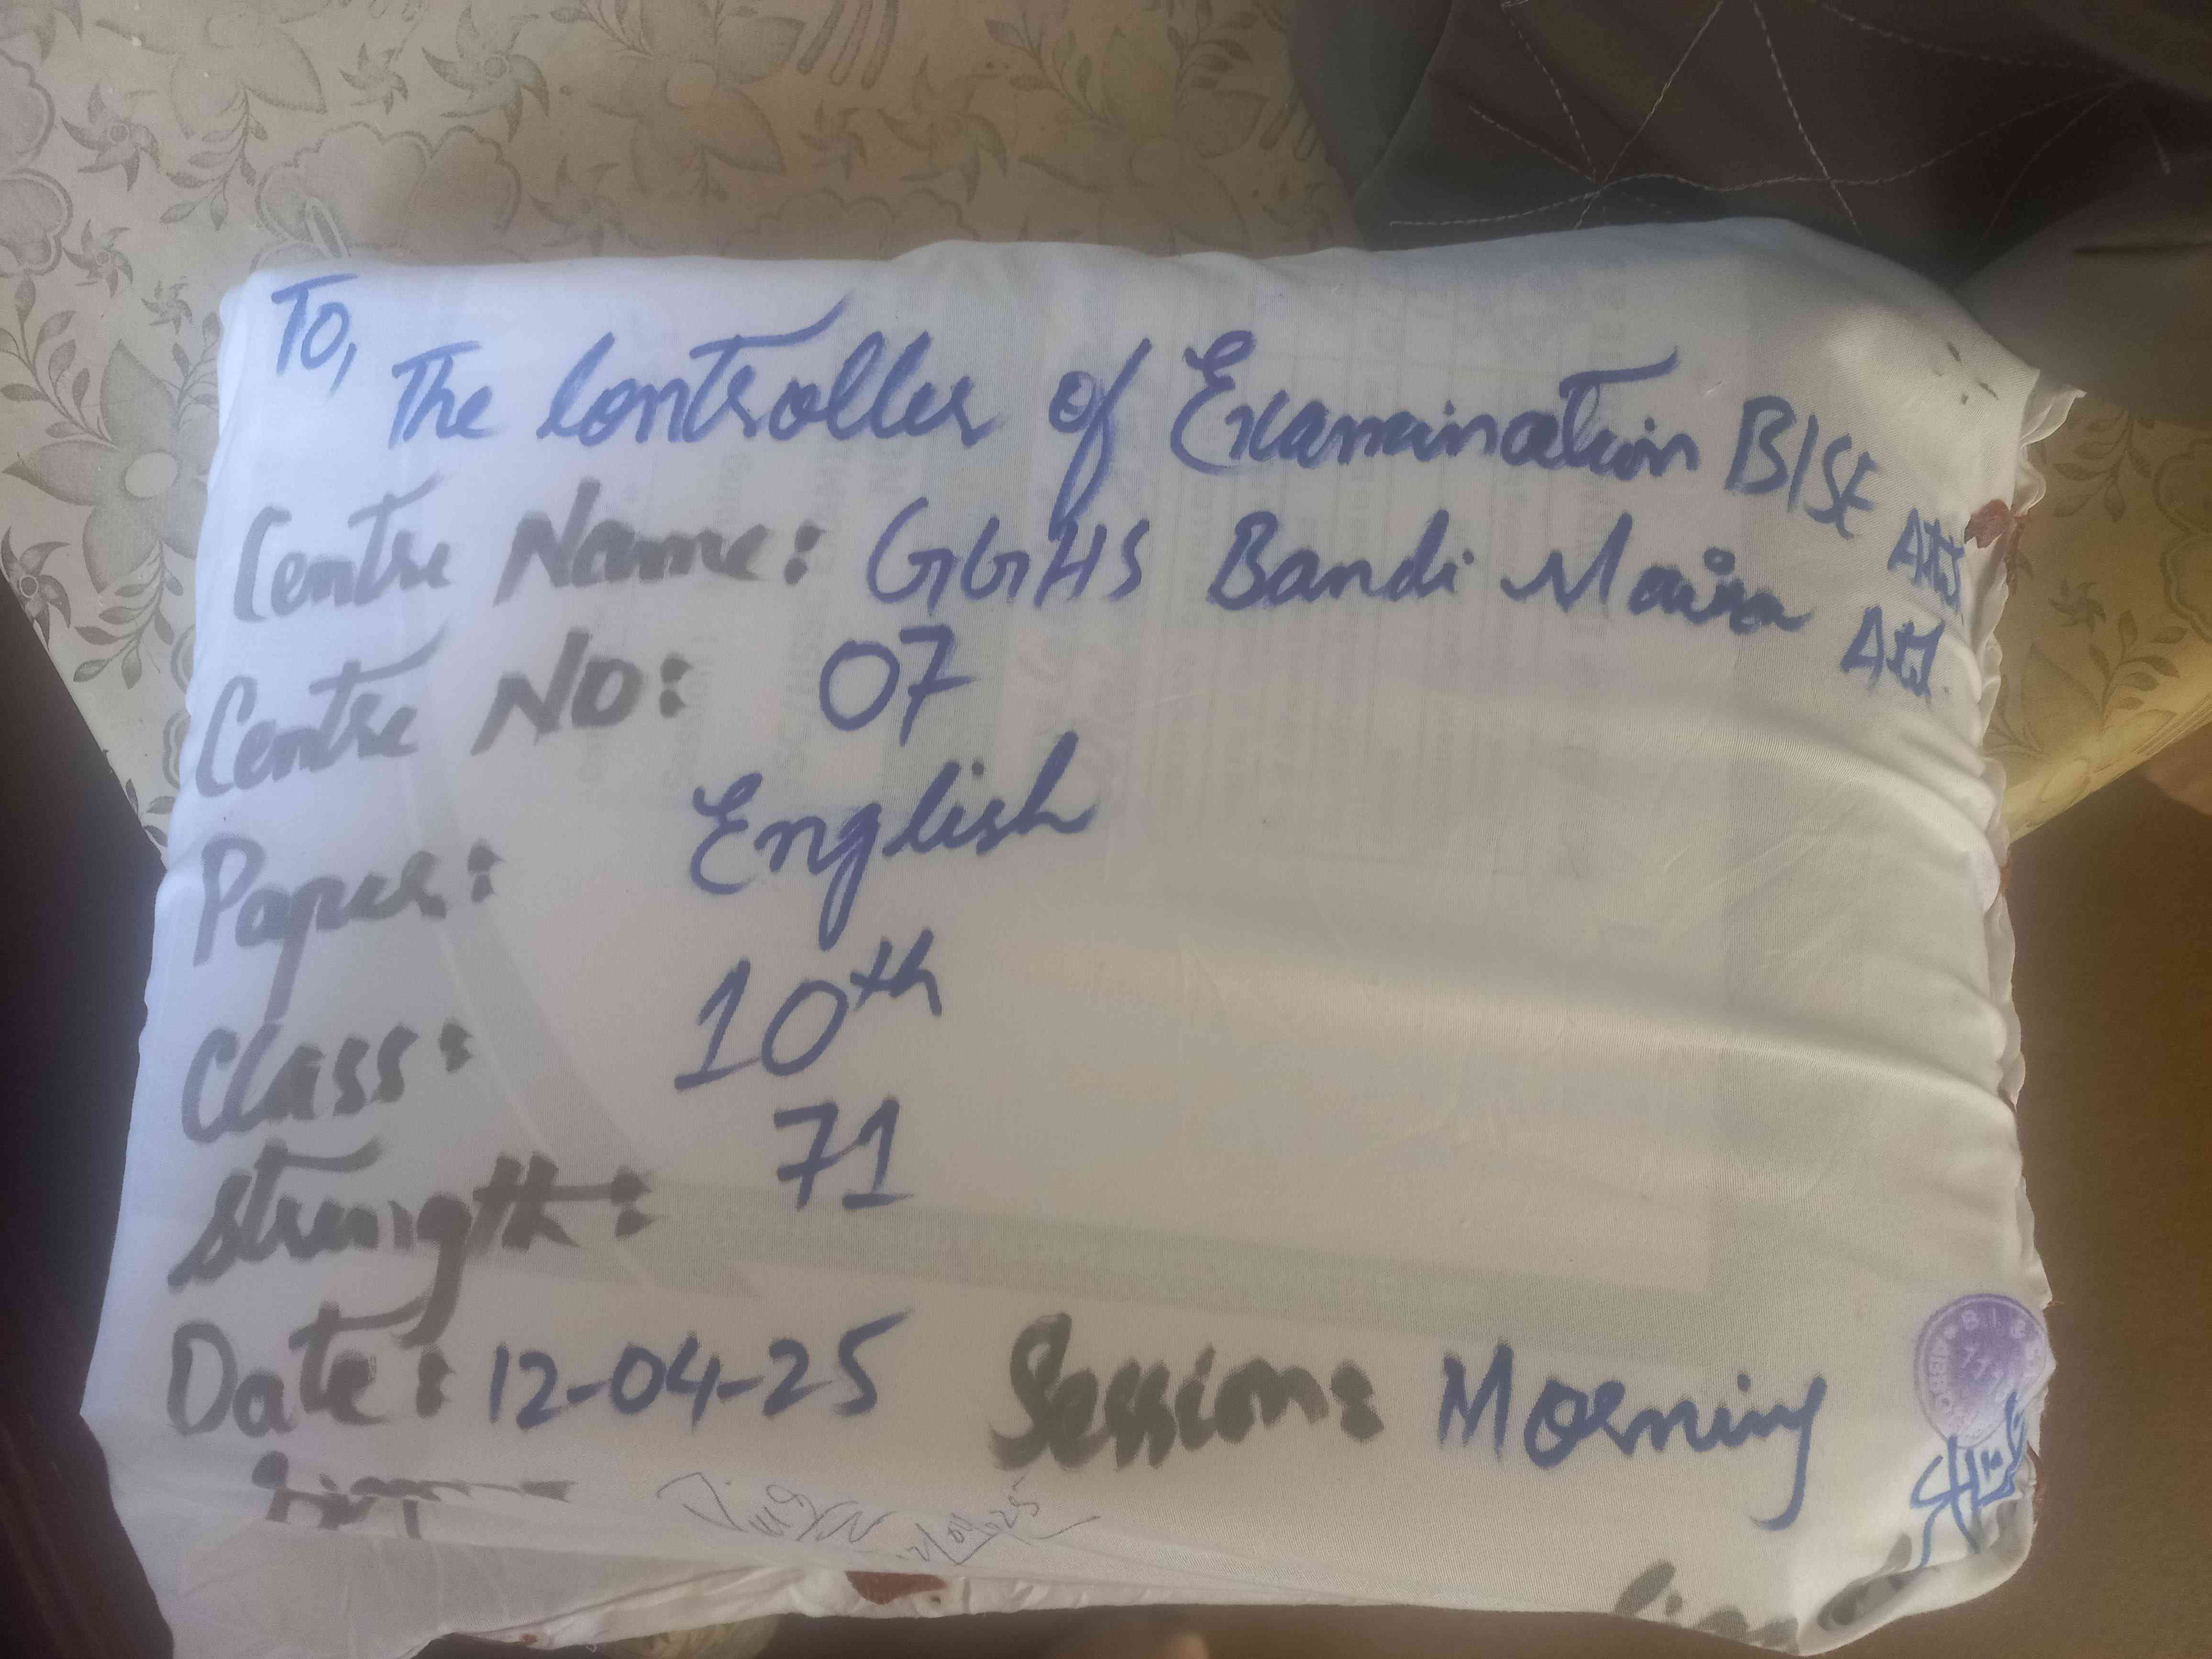 To,
The Controller of Examination BISE Atd
Centre Name: GGHS Bandi Maira Atd.
Centre No: 07
Paper: English
Class: 10th
Strength: 71
Date: 12-04-25 Session: Morning